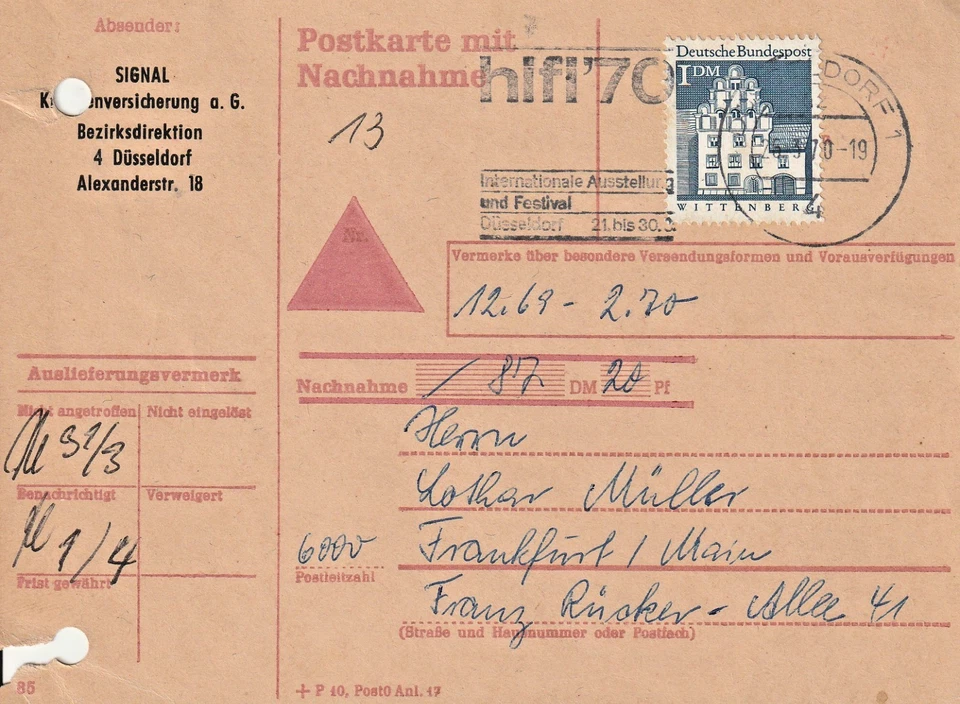 Absender:
SIGNAL
K enversicherung a. G.
Bezirksdirektion
4 Düsseldorf
Alexanderstr. 18
Postkarte mit
Nachnahme
hifi'70
Deutsche Bundespost
1 DM
WITTENBERG
DORF 1
70-19
4
13
Internationale Ausstellung
und Festival
Düsseldorf 21. bis 30.
Nr.
Vermerke über besondere Versendungsformen und Vorausverfügungen
12.69 - 2.70
Auslieferungsvermerk
Nachnahme 87 DM 20 Pf
Nicht angetroffen
Nicht eingelöst
31/3
Benachrichtigt
Verweigert
1/4
Frist gewährt
Herrn
Lothar Müller
6000 Frankfurt / Main
Postleitzahl
Franz Rücker - Allee 41
(Straße und Hausnummer oder Postfach)
85
+ P 10, PostO Anl. 17